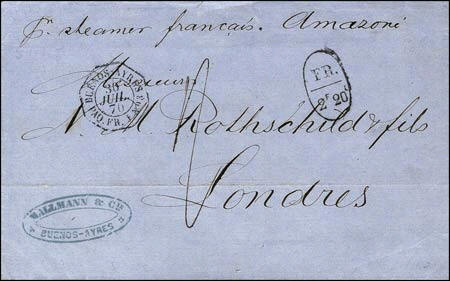 Pr. steamer français. Amazone
BUENOS-AYRES
30
JUIL.
70
PAQ. FR.
FR.
2F20c
Messieurs
N. M. Rothschild & fils
Londres
WALLMANN & Cie
BUENOS-AYRES